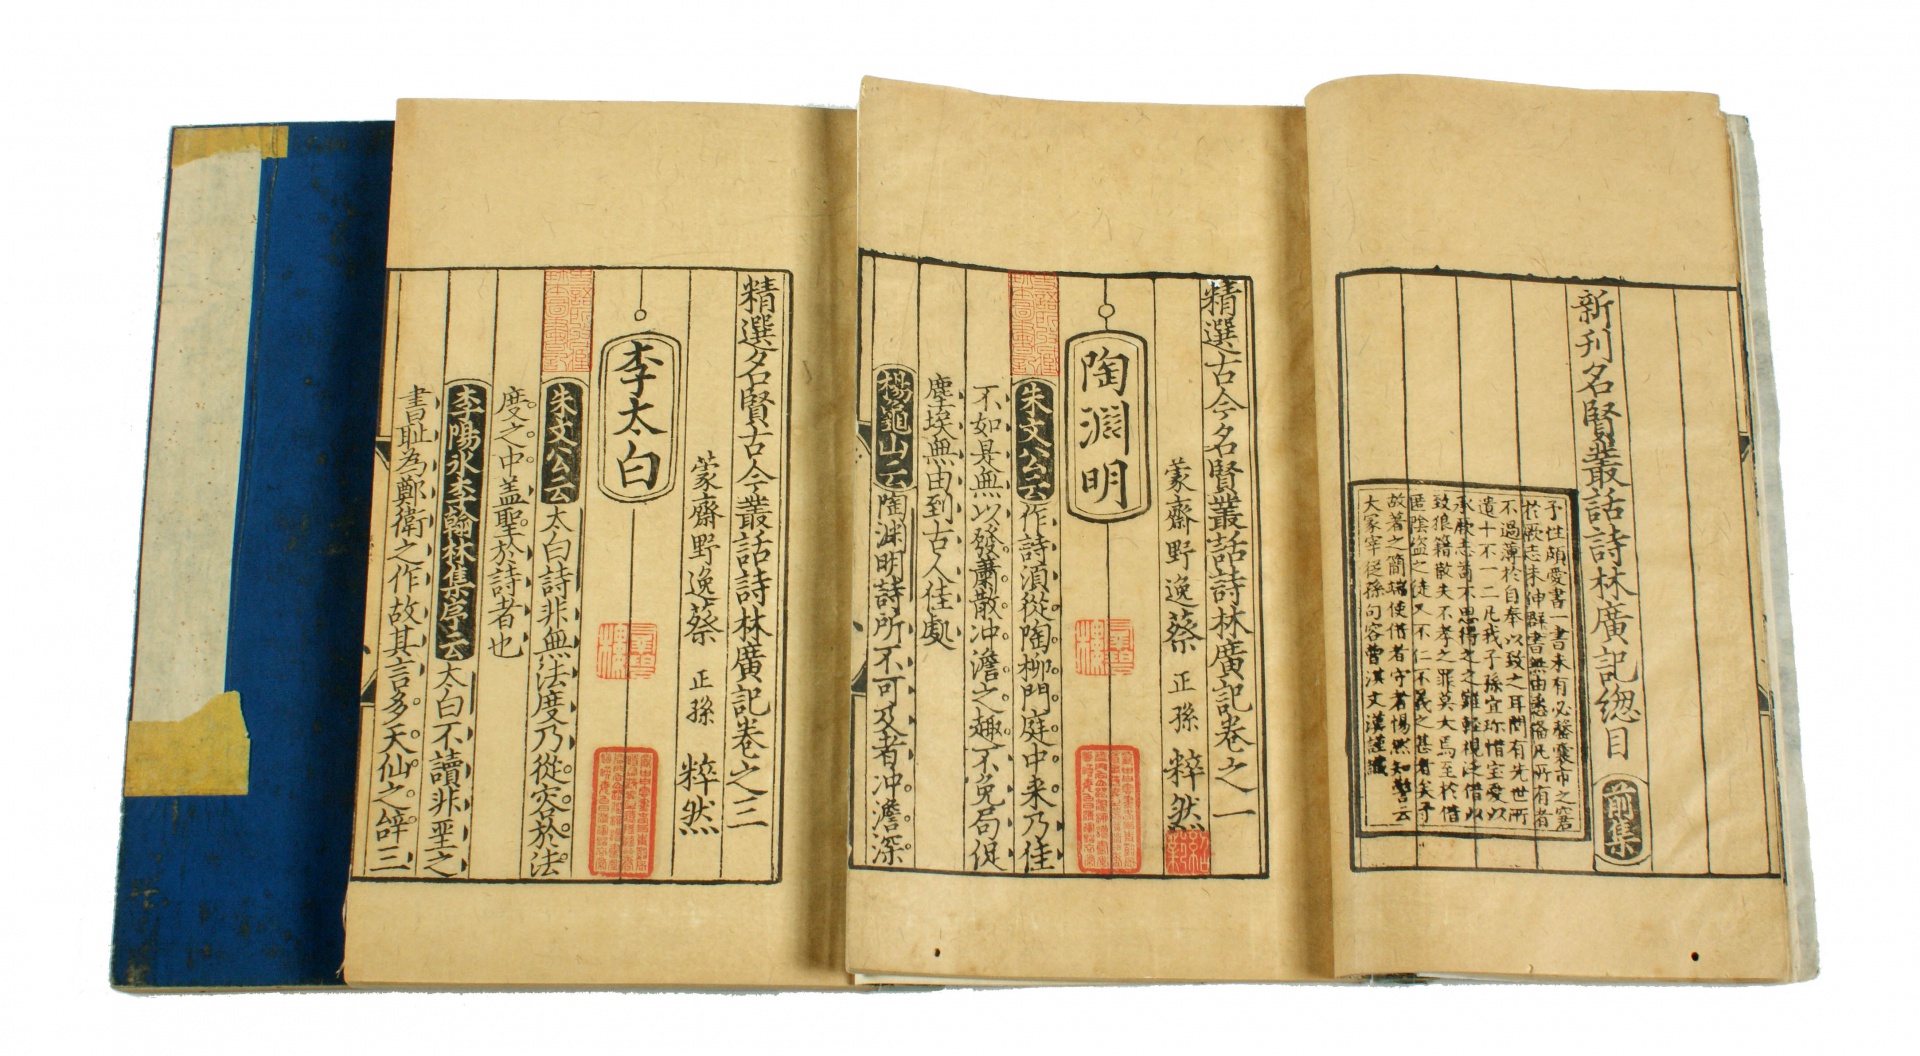 新刊名賢叢話詩林廣記總目
前集
予性頗愛書一書未有必罄囊市之窘
於厥志未伸群書無由悉備凡所有者
不過薄於自奉以致之耳間有先世所
遺十不一二凡我子孫宜珎惜宝愛以
承厥志苟不思得之之難輕視泛借以
致狼籍散失不孝之罪莫大焉至於借
匿陰盜之徒又不仁不義之甚者矣予
故著之簡端使借者守者惕然知警云
大冢宰從孫句容曹淇文漢謹識
精選古今名賢叢話詩林廣記卷之一
蒙齋野逸蔡 正孫 粹然
陶淵明
朱文公云作詩湏從陶柳門庭中来乃佳
不如是無以發蕭散冲澹之趣不免局促
塵埃無由到古人佳處
楊龜山云陶淵明詩所不可及者冲澹深
精選名賢古今叢話詩林廣記卷之三
蒙齋野逸蔡 正孫 粹然
李太白
朱文公云太白詩非無法度乃從容於法
度之中盖聖於詩者也
李陽氷李翰林集序云太白不讀非聖之
書耻為鄭衛之作故其言多天仙之辞三